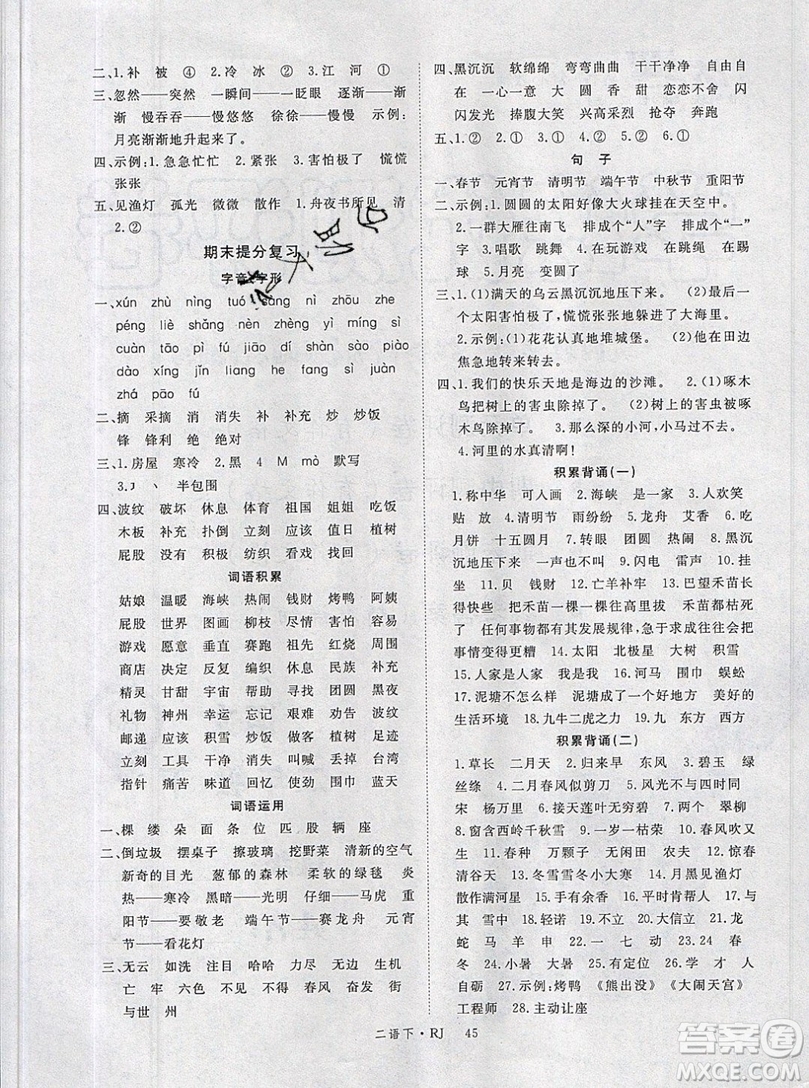 二、1.补 被 ④ 2.冷 冰 ② 3.江 河 ①
三、忽然——突然 一瞬间——一眨眼 逐渐——渐
渐 慢吞吞——慢悠悠 徐徐——慢慢 示例:
月亮渐渐地升起来了。
四、示例:1.急急忙忙 2.紧张 3.害怕极了 慌慌
张张
五、见渔灯 孤光 微微 散作 1.舟夜书所见 清
2.②
期末提分复习
字音 字形
一、xún zhù nìng tuó sāng nì zhōu zhe
péng liè shǎng nèn zhèng yì míng sì
cuàn tāo pàn tàn tǎn cāng qí shì
dào xíng jīn liang he fang xiǎn juàn
zhá pāo fú
二、摘 采摘 消 消失 补 补充 炒 炒饭
锋 锋利 绝 绝对
三、1.房屋 寒冷 2.黑 4 M mò 默写
3.丿 丶 半包围
四、波纹 破坏 休息 体育 祖国 姐姐 吃饭
木板 补充 扑倒 立刻 应该 值日 植树
屁股 没有 积极 纺织 看戏 找回
词语积累
姑娘 温暖 海峡 热闹 钱财 烤鸭 阿姨
屁股 世界 图画 柳枝 尽情 害怕 容易
游戏 愿意 垂直 赛跑 祖先 红烧 周围
商店 决定 反复 编织 休息 民族 补充
精灵 甘甜 宇宙 寻找 于是 团圆 黑夜
礼物 神州 幸运 忘记 艰难 劝告 波纹
邮递 应该 积雪 雪白 做客 植树 足迹
立刻 工具 干净 消失 叫喊 丢掉 台湾
指针 痛苦 味道 回忆 彩虹 围巾 蓝天
词语运用
一、棵 缕 朵 面 条 位 匹 股 辆 座
二、倒垃圾 摆桌子 擦玻璃 挖野菜 清新的空气
新奇的目光 葱郁的森林 柔软的绿毯 炎
热——寒冷 黑暗——光明 仔细——马虎 重
阳节——要敬老 端午节——赛龙舟 元宵
节——看花灯
三、无云 如洗 注目 哈哈 力尽 无边 生机
亡 牢 六色 不见 不同 大笑 冰天 绿水
与世 州
四、黑沉沉 软绵绵 弯弯曲曲 干干净净 自由自
在 亡 足 意 大 圆 香 甜 恋恋不舍 闪
闪发光 捧腹大笑 兴高采烈 抢夺 奔跑
五、1.② 2.① 3.② 4.② 5.② 6.①
句 子
一、春节 元宵节 清明节 端午节 中秋节 重阳节
二、示例:1.圆圆的太阳好像大火球挂在天空中。
2.一群大雁往南飞 排成个“人”字 排成个“一”
字 3.唱歌 跳舞 4.在玩游戏 在跳绳 5.
女孩 6.变圆了
三、1.(1)满天的乌云黑沉沉地压下来。 (2)一个
太阳害怕极了,慌慌张张地躲进了大海里。
2.示例:(1)花花认真地堆城堡。 (2)他在田边
焦急地转来转去。
四、1.我们的快乐天地是海边的沙滩。 2.(1)啄木
鸟把树上的害虫除掉了。 (2)树上的害虫被啄
木鸟除掉了。 3.那么深的小河,小马过不来。
4.河里的水真清啊!
积累背诵(一)
1.称中华 可人画 2.海峡 一家亲 3.人欢笑
贴 放 4.清明节 雨纷纷 5.龙舟 艾香 6.吃
月饼 十五圆月 7.转眼 团圆 热闹 8.黑沉
沉地压下来 一声也不叫 9.闪电 雷声 10.挂
坐 11.贝 钱财 12.亡羊补牢 13.巴望禾苗长
得快些 把禾苗一棵一棵往高里拔 禾苗都枯死
了 任何事物都有发展规律,急于求成往往会把
事情变得更糟 14.太阳 北极星 大树 积雪
15.别人是别人 我是我 16.河马 围巾 蜈蚣
17.泥塘不怎么样 泥塘成了个好地方 美好的
生活环境 18.九牛二虎之力 19.九 东方 西方
积累背诵(二)
1.草长 二月天 2.归来早 东风 3.碧玉 绿
丝绦 4.二月春风似剪刀 5.风光不与四时同
宋 杨万里 6.接天莲叶无穷碧 7.两个 翠柳
8.窗含西岭千秋雪 9.一岁一枯荣 10.春风吹又
生 11.春种 万颗子 无闲田 农夫 12.惊春
清谷天 夏满芒夏暑相连 13.月黑见渔灯
散作满河星 14.予人玫瑰 15.平时肯帮人 16.与
其 雪中 17.轻诺 18.不大 20.大信立 21.龙
蛇 马 羊 22.一 二 一 一 23.24 春
冬 24.小暑 大暑 25.不迁怒 26.学工 大王
自勉 27.示例:烤鸭 《熊出没》 《大闹天宫》
工程师 28.主动让座
二语下·RJ 45
答案圈
MXQE.COM